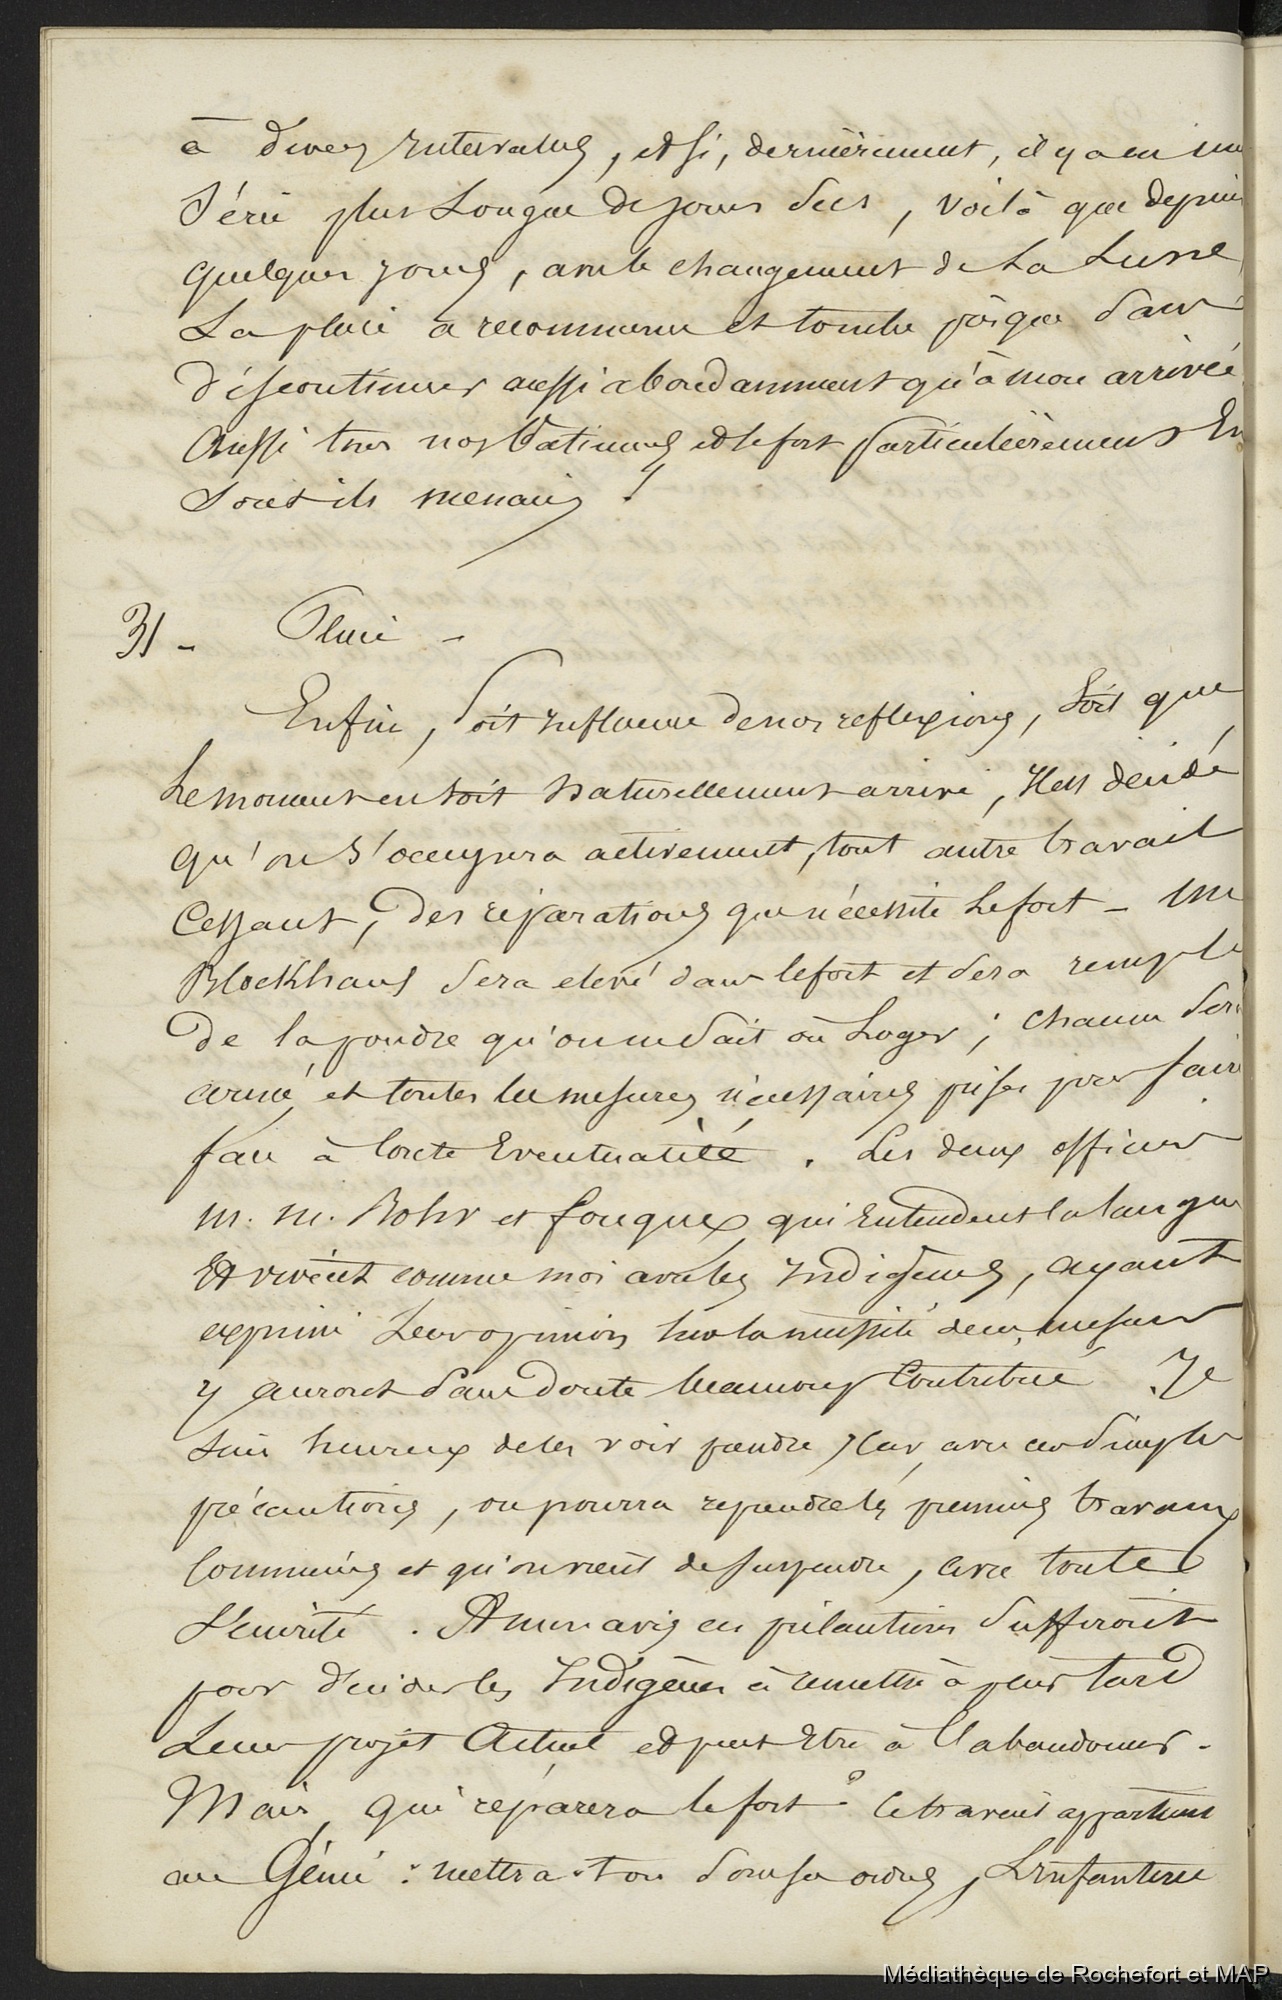 à divers Intervalles, et si, dernièrement, il y a eu une
Série plus Longue de jours secs, Voilà que depuis
quelques jours, avec le changement de La Lune,
La pluie a recommencé et tombe presque sans
discontinuer aussi abondamment qu'à mon arrivée
Aussi tous nos batiments et le fort particulièrement En
Sont ils menacés !
31 - Pluie -
Enfin, soit Influence de nos reflexions, Soit que
Le moment en soit Naturellement arrivé, Il est décidé
qu'on s'occupera activement, tout autre travail
Cessant, des réparations que nécessite Le fort - Un
Blockhaus sera elevé dans le fort et sera rempli
De la poudre qu'on ne sait où Loger ; chacun sera
armé et toutes les mesures nécessaires prises pour faire
face à toute Eventualité . Les deux officiers
M. M. Rohr et Fouques qui Entendent la langue
Et vivent comme moi avec les Indigènes, ayant
exprimé Leur opinion sur la nécessité de ces mesures
y auront sans doute beaucoup Contribué . Je
suis heureux de les voir prendre, Car, avec ces simples
précautions, on pourra reprendre les premiers travaux
Commencés et qu'on vient de suspendre, avec toute
Sécurité . A mon avis ces précautions suffiront
pour décider les Indigènes à remettre à plus tard
Leur projet Actuel et peut Etre à l'abandonner .
Mais, qui réparera le fort ? Ce travail appartient
au Génie : mettra-t-on sous ses ordres, L'Infanterie
Médiathèque de Rochefort et MAP